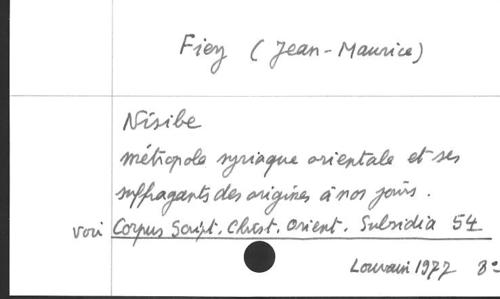 Fiey (Jean-Maurice)
Nisibe
métropole syriaque orientale et ses
suffragants des origines à nos jours.
voir Corpus Script. Christ. Orient. Subsidia 54
Louvain 1977 8°